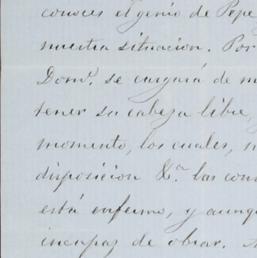 conoces el genio de Pepe
nuestra situacion. Por
Domo. se cuguia de m
tener su cabeza libre,
momento, los cuales, n
disposicion &a. las con
está enfermo, y aunq
incapaz de obrar.